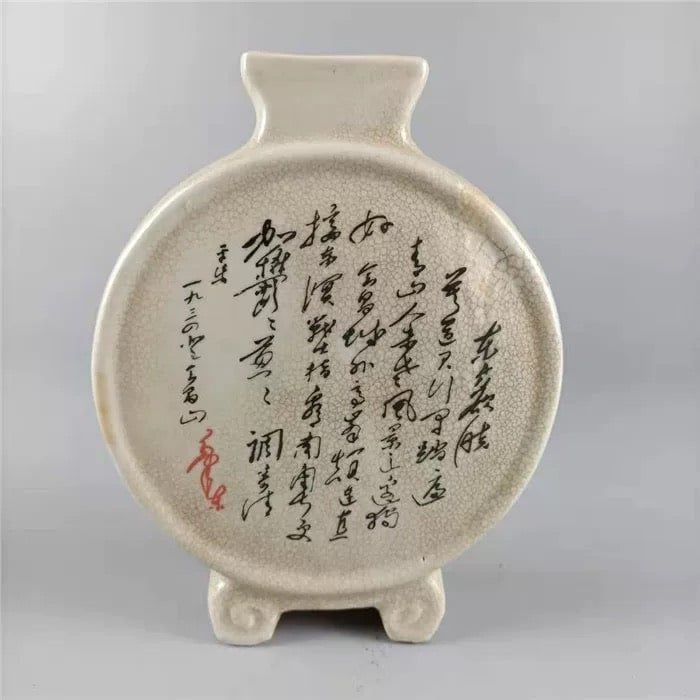 东方欲晓
莫道君行早踏遍
青山人未老风景这边独
好会昌城外高峯颠连直
接东溟战士指看南粤更
加鬱々葱々 调寄清
平乐
一九三四登会昌山